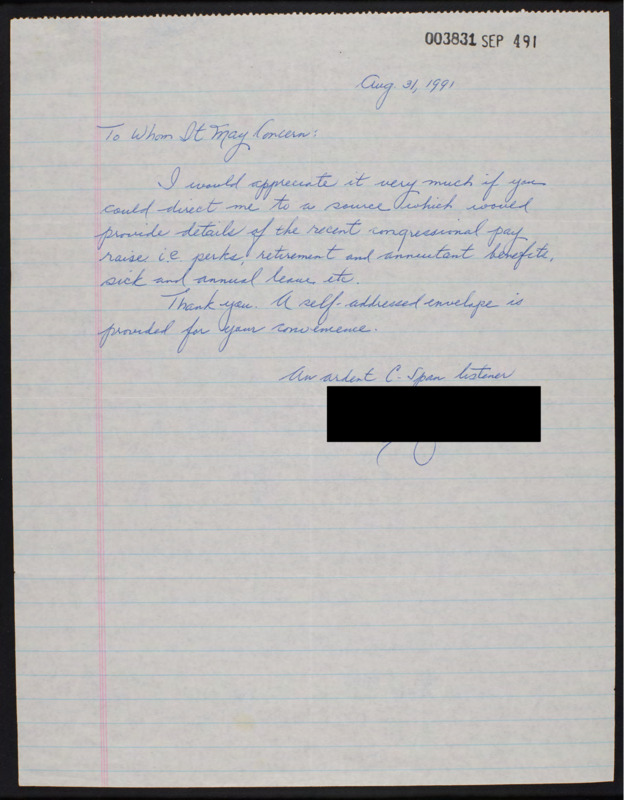 003831 SEP 491
Aug. 31, 1991
To Whom It May Concern:
I would appreciate it very much if you
could direct me to a source which would
provide details of the recent congressional pay
raise ie perks, retirement and annuitant benefits,
sick and annual leave etc.
Thank you. A self-addressed envelope is
provided for your convenience.
An ardent C-Span listener